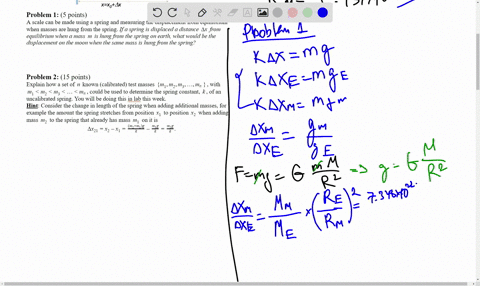 x=x₀+Δx
Problem 1: (5 points)
A scale can be made using a spring and measuring the displacement from equilibrium
when masses are hung from the spring. If a spring is displaced a distance Δx from
equilibrium when a mass m is hung from the spring on earth, what would be the
displacement on the moon when the same mass is hung from the spring?
Problem 2: (15 points)
Explain how a set of n known (calibrated) test masses {m₁, m₂, m₃, … mₙ}, with
m₁ < m₂ < m₃ < … < mₙ, could be used to determine the spring constant, k, of an
uncalibrated spring. You will be doing this in lab this week.
Hint: Consider the change in length of the spring when adding additional masses, for
example the amount spring stretches from position x₁ to position x₂ when adding
mass m₂ to the spring that already has mass m₁ on it is
Problem 1
KΔX = mg
KΔX_E = mg_E
KΔX_M = mg_M
ΔX_M/ΔX_E = g_M/g_E
F=mg = G mM/R² => g = G M/R²
ΔX_M/ΔX_E = M_M/M_E × (R_E/R_M)² =